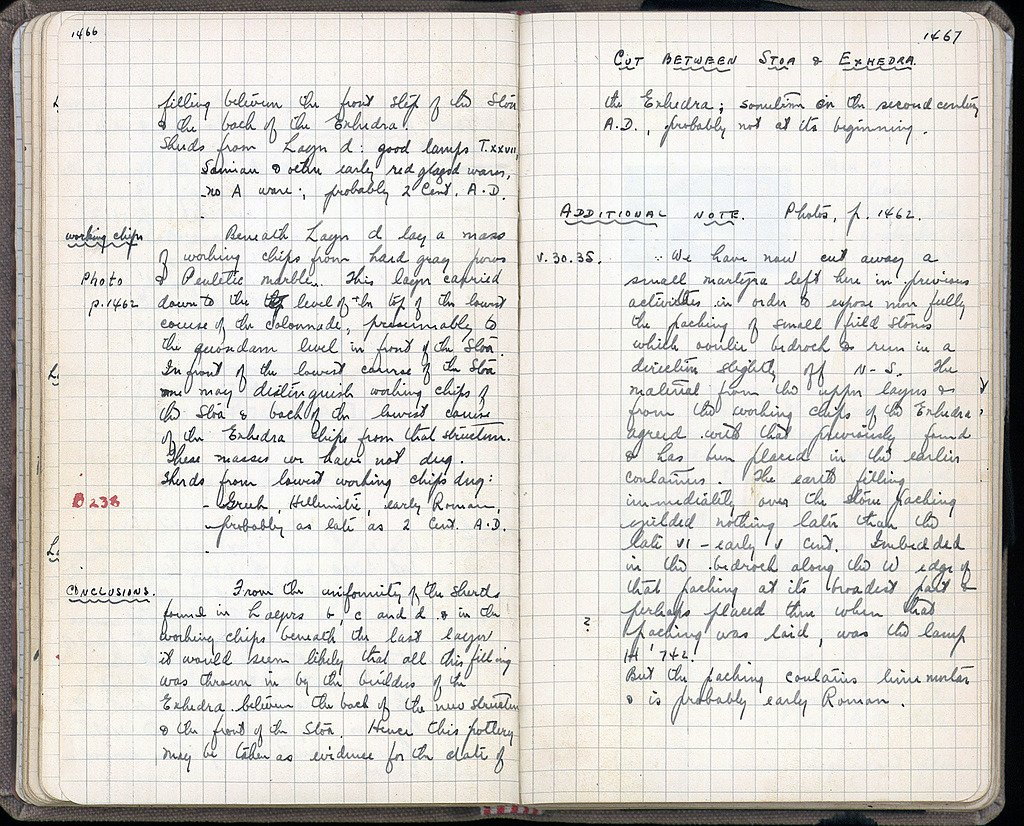 1466
filling between the front step of the Stoa
& the back of the Exhedra.
Sherds from Layer d: good lamps T.XXVII,
Samian & other early red glazed wares,
no A ware; probably 2 Cent. A.D.
working chips
Beneath Layer d lay a mass
of working chips from hard gray poros
Photo
& Pentelic marble. This layer carried
p.1462
down to the level of the top of the lowest
course of the colonnade, presumably to
the quondam level in front of the Stoa.
In front of the lowest course of the Stoa
one may distinguish working chips of
the Stoa & back of the lowest course
of the Exhedra chips from that structure.
These masses we have not dug.
Sherds from lowest working chips dug:
B 238
- Greek, Hellenistic, early Roman,
- probably as late as 2 Cent. A.D.
CONCLUSIONS.
From the uniformity of the sherds
found in Layers b, c and d & in the
working chips beneath the last layer
it would seem likely that all this filling
was thrown in by the builders of the
Exhedra between the back of the new structure
& the front of the Stoa. Hence this pottery
may be taken as evidence for the date of
1467
CUT BETWEEN STOA & EXHEDRA
the Exhedra; sometime in the second century
A.D., probably not at its beginning.
ADDITIONAL NOTE. Photos, p. 1462.
V.30.35.
We have now cut away a
small martyra left here in previous
activities in order to expose more fully
the packing of small field stones
which overlie bedrock & run in a
direction slightly off N-S. The
material from the upper layers &
from the working chips of the Exhedra
agreed with that previously found
& has been placed in the earlier
containers. The earth filling
immediately over the stone packing
yielded nothing later than the
late VI - early V cent. Imbedded
in the bedrock along the W edge of
that packing at its broadest part &
perhaps placed there when that
?
packing was laid, was the lamp
742.
But the packing contains lime mortar
& is probably early Roman.